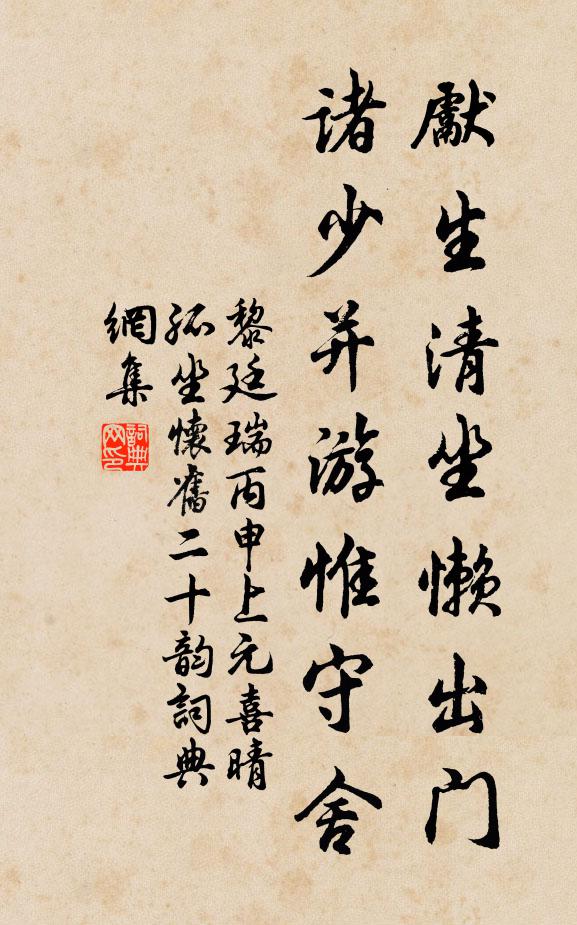 獻生清坐懒出门
诸少并游惟守舍
黎廷瑞丙申上元喜晴
孤坐懷舊二十韵詞典
網集
詞典
网印